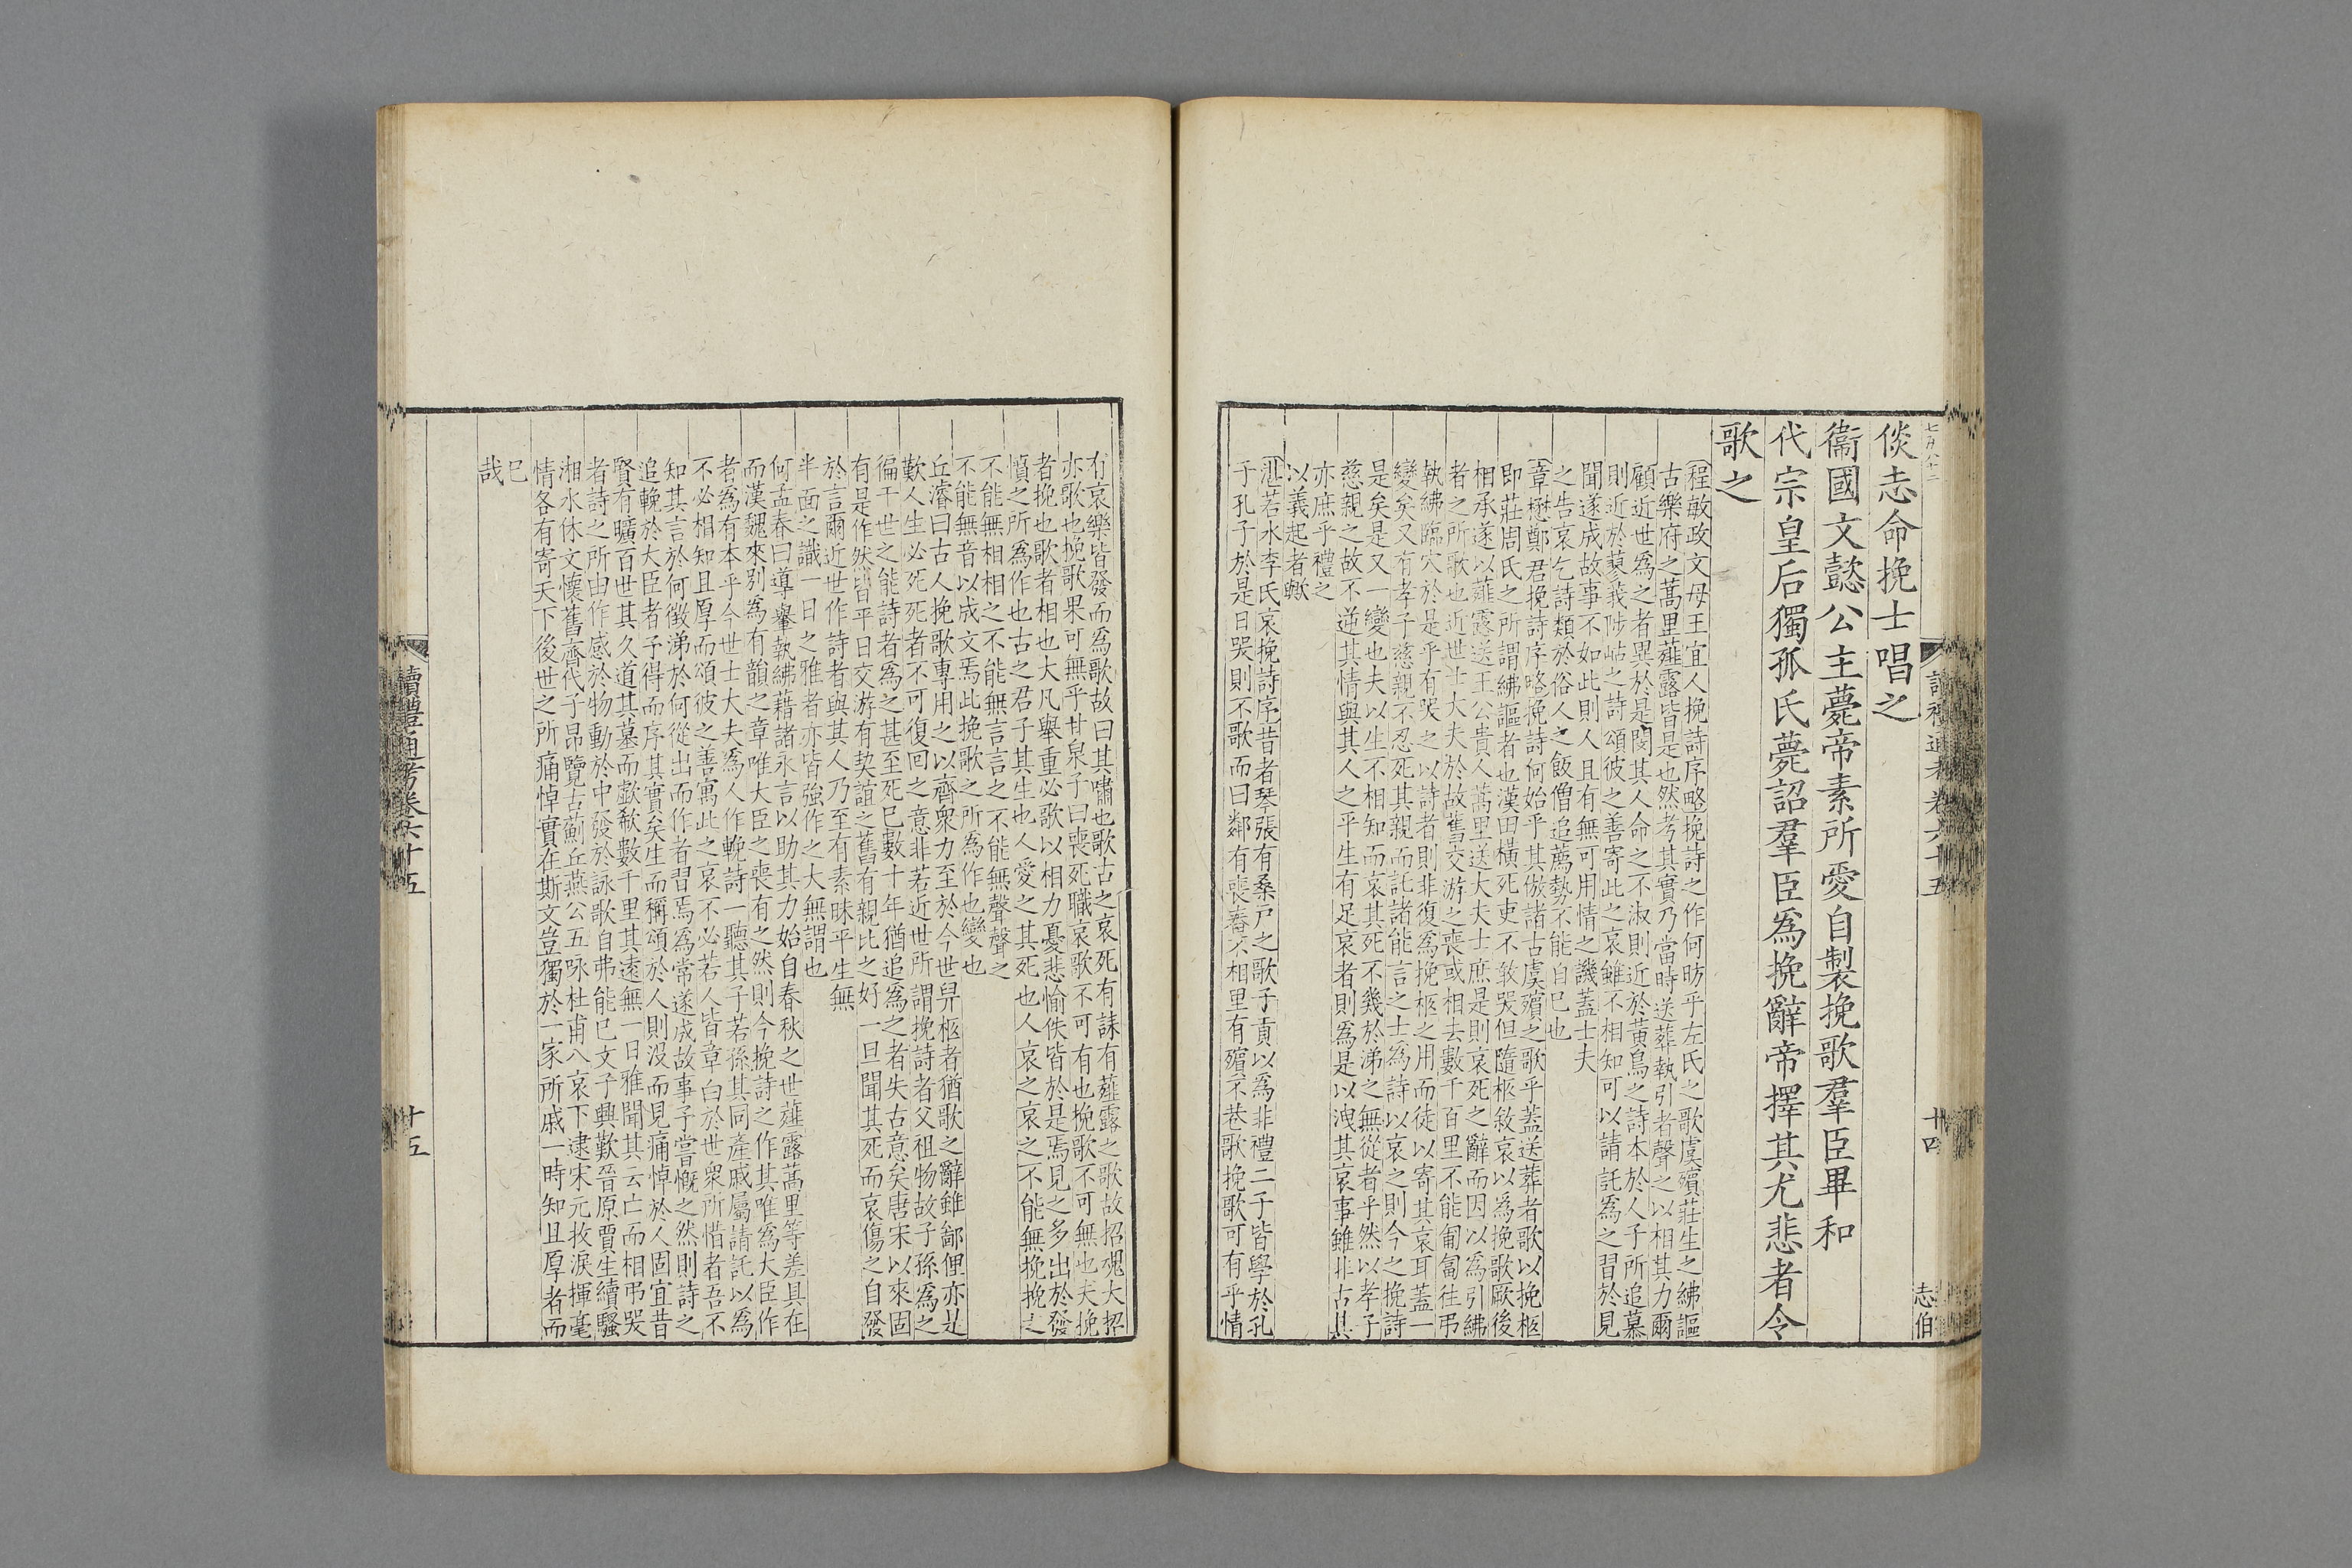 七百八十二
讀禮通考卷六十五
十四
志伯
倓志命挽士唱之
衞國文懿公主薨帝素所愛自製挽歌羣臣畢和
代宗皇后獨孤氏薨詔羣臣爲挽辭帝擇其尤悲者令
歌之
程敏政文母王宜人挽詩序略挽詩之作何昉乎左氏之歌虞殯莊生之紼謳
古樂府之蒿里薤露皆是也然考其實乃當時送葬執引者聲之以相其力爾
顧近世爲之者異於是閔其人命之不淑則近於黃鳥之詩本於人子所追慕
則近於蓼莪陟岵之詩頌彼之善寄此之哀雖不相知可以請託爲之習於見
聞遂成故事不如此則人且有無可用情之譏蓋士夫
之告哀乞詩類於俗人之飯僧追薦勢不能自已也
章懋鄭君挽詩序略挽詩何始乎其倣諸古虞殯之歌乎蓋送葬者歌以挽柩
即莊周氏之所謂紼謳者也漢田橫死吏不敢哭但隨柩敘哀以爲挽歌厥後
相承遂以薤露送王公貴人蒿里送大夫士庶是則哀死之辭而因以爲引紼
者之所歌也近世士大夫於故舊交游之喪或相去數千百里不能匍匐往弔
執紼臨穴於是乎有哭之以詩者則非復爲挽柩之用而徒以寄其哀耳蓋一
變矣又有孝子慈親不忍死其親而託諸能言之士爲詩以哀之則今之挽詩
是矣是又一變也夫以生不相知而哀其死不幾於涕之無從者乎然以孝子
慈親之故不逆其情與其人之平生有足哀者則爲是以洩其哀事雖非古其
亦庶乎禮之
以義起者歟
湛若水李氏哀挽詩序昔者琴張有桑戶之歌子貢以爲非禮二子皆學於孔
子孔子於是日哭則不歌而曰鄰有喪舂不相里有殯不巷歌挽歌可有乎情
有哀樂皆發而爲歌故曰其嘯也歌古之哀死有誄有薤露之歌故招魂大招
亦歌也挽歌果可無乎甘泉子曰喪死職哀歌不可有也挽歌不可無也夫挽
者挽也歌者相也大凡舉重必歌以相力憂悲愉佚皆於是焉見之多出於發
憤之所爲作也古之君子其生也人愛之其死也人哀之哀之不能無挽挽之
不能無相相之不能無言言之不能無聲聲之
不能無音以成文焉此挽歌之所爲作也變也
丘濬曰古人挽歌專用之以齊衆力至於今世舁柩者猶歌之辭雖鄙俚亦是
歎人生必死死者不可復回之意非若近世所謂挽詩者父祖物故子孫爲之
徧干世之能詩者爲之甚至死已數十年猶追爲之者失古意矣唐宋以來固
有是作然皆平日交游有契誼之舊有親比之好一旦聞其死而哀傷之自發
於言爾近世作詩者與其人乃至有素昧平生無
半面之識一日之雅者亦皆強作之大無謂也
何孟春曰導轝執紼藉諸永言以助其力始自春秋之世薤露蒿里等差具在
而漢魏來別爲有韻之章唯大臣之喪有之然則今挽詩之作其唯爲大臣作
者爲有本乎今世士大夫爲人作輓詩一聽其子若孫其同產戚屬請託以爲
不必相知且厚而頌彼之善寓此之哀不必若人皆章白於世衆所惜者吾不
知其言於何徵涕於何從出而作者習焉爲常遂成故事予嘗慨之然則詩之
追輓於大臣者予得而序其實矣生而稱頌於人則沒而見痛悼於人固宜昔
賢有曠百世其久道其墓而歔欷數千里其遠無一日雅聞其云亡而相弔哭
者詩之所由作感於物動於中發於詠歌自弗能已文子興歎晉原賈生續騷
湘水休文懷舊齊代子昂覽古薊丘燕公五咏杜甫八哀下逮宋元抆淚揮毫
情各有寄天下後世之所痛悼實在斯文豈獨於一家所戚一時知且厚者而
已
哉
讀禮通考卷六十五
十五